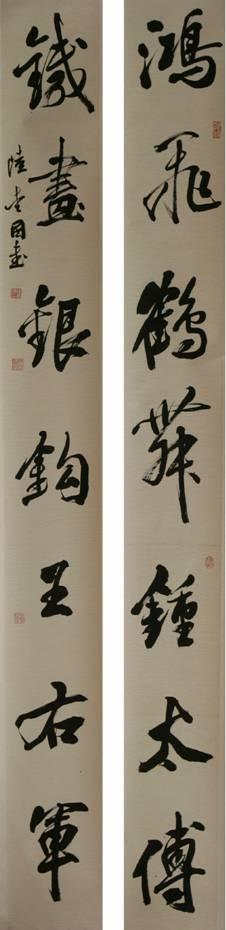 鴻飛鶴舞鍾太傅
鐵畫銀鉤王右軍